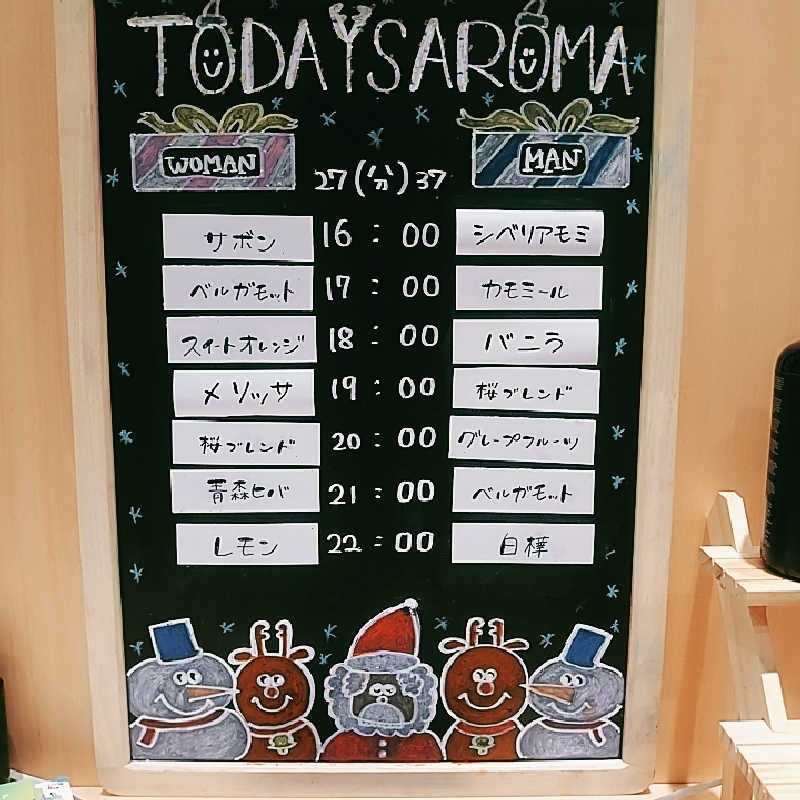 TODAYSAROMA
WOMAN 27(分)37 MAN
サボン 16:00 シベリアモミ
ベルガモット 17:00 カモミール
スイートオレンジ 18:00 バニラ
メリッサ 19:00 桜ブレンド
桜ブレンド 20:00 グレープフルーツ
青森ヒバ 21:00 ベルガモット
レモン 22:00 白樺